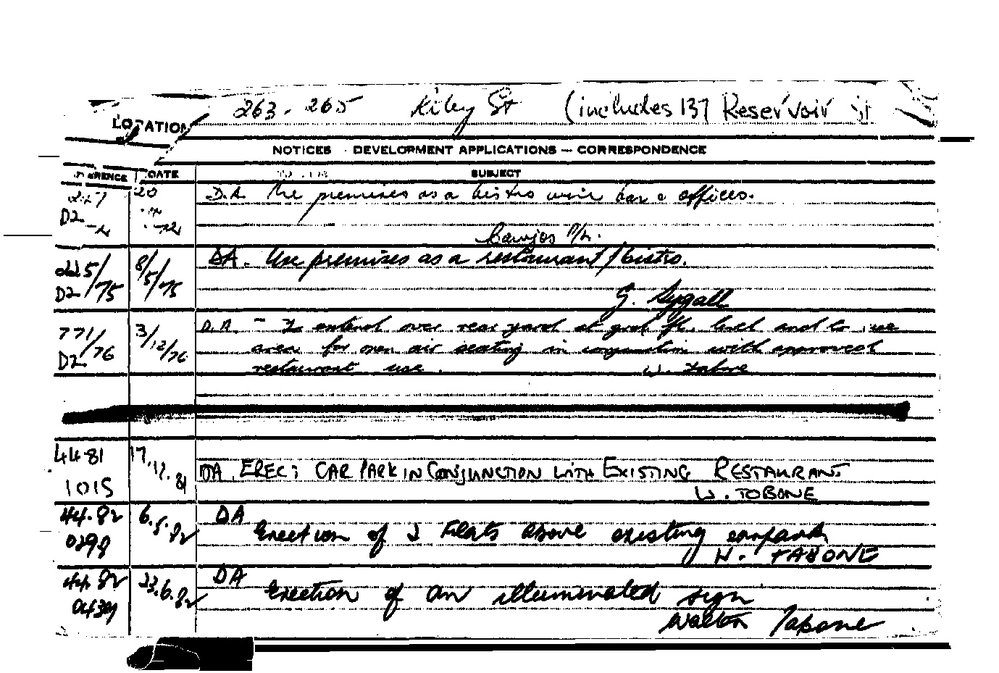 263-265 Riley St (includes 137 Reservoir St
LOCATION
NOTICES - DEVELOPMENT APPLICATIONS - CORRESPONDENCE
DATE SUBJECT
D2 20 D.A. The premises as a bistro wine bar & offices.
P/L.
D2/75 8/5/75 DA. Use premises as a restaurant/bistro.
G. Sygall
771/76 D2 3/12/76 D.A. - To extend over rear yard at grd. fl. level and to use
area for open air seating in conjunction with approved
restaurant use. W. Tabone
44-81 1015 17.12.81 DA. ERECT CAR PARK IN CONJUNCTION WITH EXISTING RESTAURANT
W. TOBONE
44.82 0298 6.5.82 DA
Erection of 2 Flats above existing carpark
W. TABONE
44.82 0439 23.6.82 DA
Erection of an illuminated sign
Walton Tabone